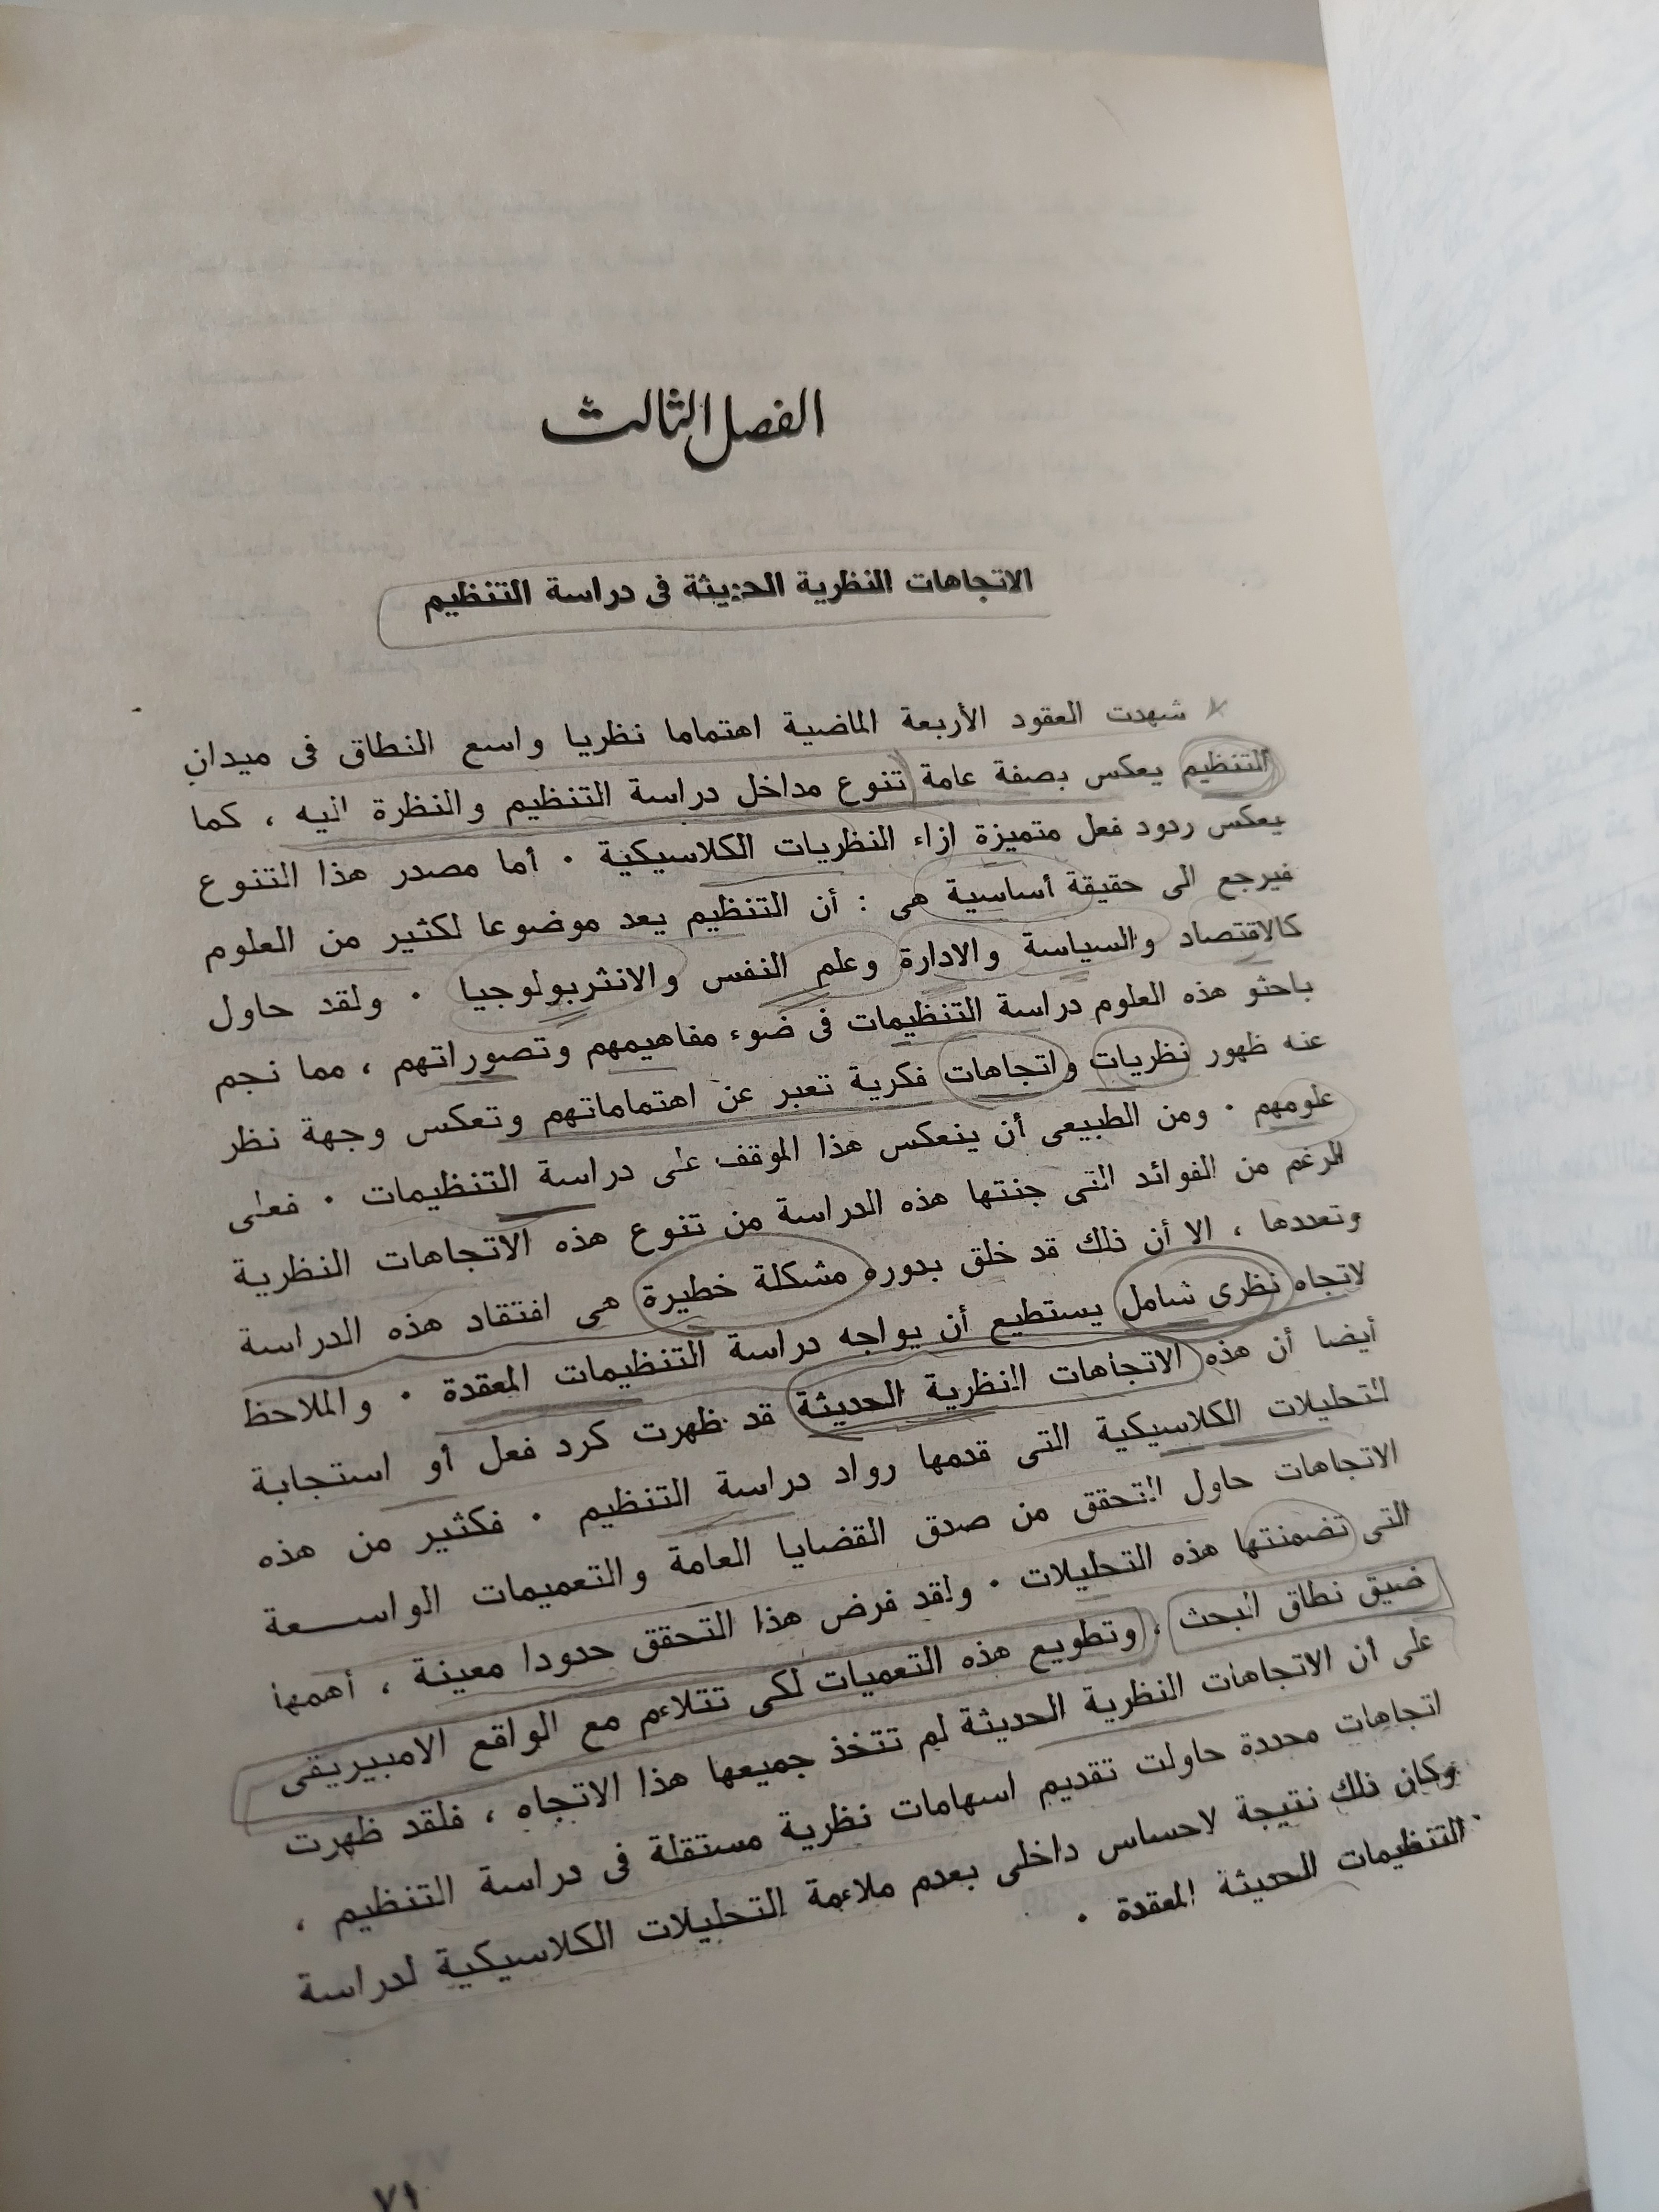 الفصل الثالث
الاتجاهات النظرية الحديثة فى دراسة التنظيم
شهدت العقود الأربعة الماضية اهتماما نظريا واسع النطاق فى ميدان
التنظيم يعكس بصفة عامة تنوع مداخل دراسة التنظيم والنظرة اليه ، كما
يعكس ردود فعل متميزة ازاء النظريات الكلاسيكية . أما مصدر هذا التنوع
فيرجع الى حقيقة أساسية هى : أن التنظيم يعد موضوعا لكثير من العلوم
كالاقتصاد والسياسة والادارة وعلم النفس والانثربولوجيا . ولقد حاول
باحثو هذه العلوم دراسة التنظيمات فى ضوء مفاهيمهم وتصوراتهم ، مما نجم
عنه ظهور نظريات واتجاهات فكرية تعبر عن اهتماماتهم وتعكس وجهة نظر
علومهم . ومن الطبيعى أن ينعكس هذا الموقف على دراسة التنظيمات . فعلى
الرغم من الفوائد التى جنتها هذه الدراسة من تنوع هذه الاتجاهات النظرية
وتعددها ، الا أن ذلك قد خلق بدوره مشكلة خطيرة هى افتقاد هذه الدراسة
لاتجاه نظرى شامل يستطيع أن يواجه دراسة التنظيمات المعقدة . والملاحظ
أيضا أن هذه الاتجاهات النظرية الحديثة قد ظهرت كرد فعل أو استجابة
للتحليلات الكلاسيكية التى قدمها رواد دراسة التنظيم . فكثير من هذه
الاتجاهات حاول التحقق من صدق القضايا العامة والتعميمات الواســعة
التى تضمنتها هذه التحليلات . ولقد فرض هذا التحقق حدودا معينة ، أهمها
ضيق نطاق البحث ، وتطويع هذه التعميات لكى تتلاءم مع الواقع الامبيريقى
على أن الاتجاهات النظرية الحديثة لم تتخذ جميعها هذا الاتجاه ، فلقد ظهرت
اتجاهات محددة حاولت تقديم اسهامات نظرية مستقلة فى دراسة التنظيم ،
وكان ذلك نتيجة لاحساس داخلى بعدم ملاءمة التحليلات الكلاسيكية لدراسة
التنظيمات الحديثة المعقدة .
٧١